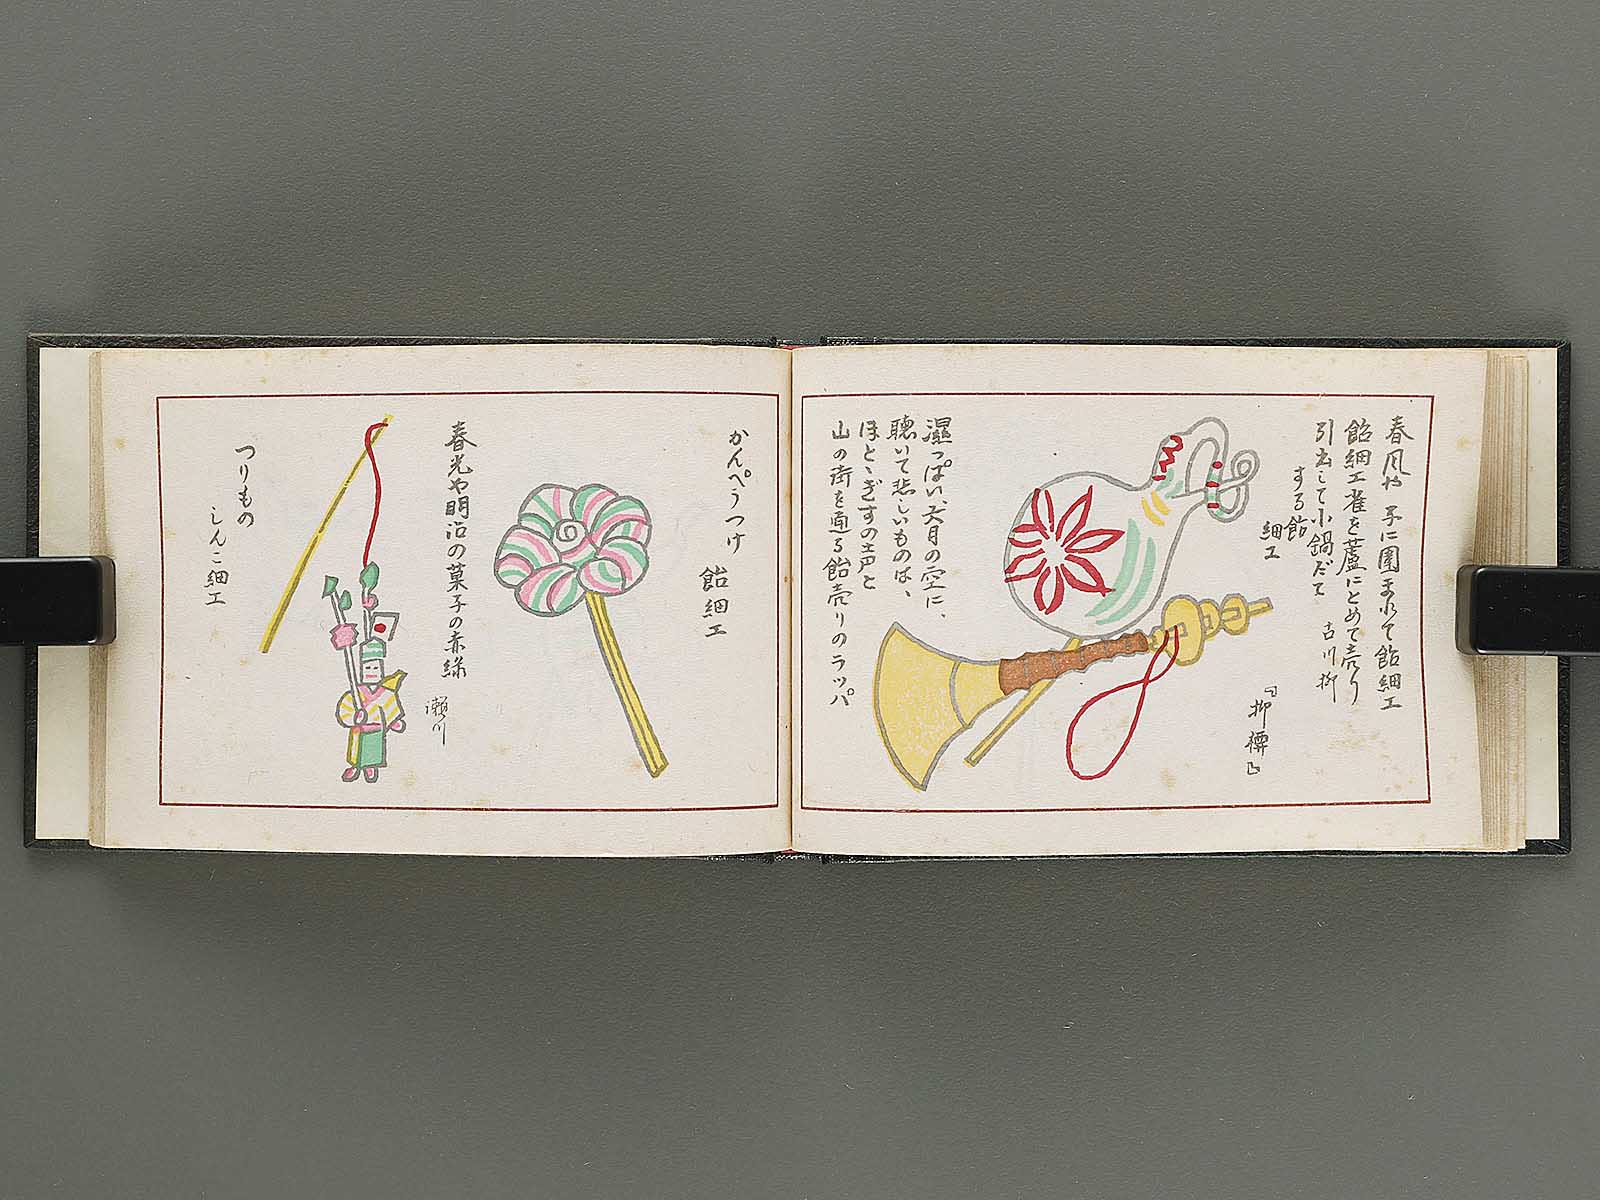 春風や子に圍まれて飴細工
飴細工雀を蘆にとめて売り
引出して小鍋だて 古川柳
する飴
細工
『柳樽』
湿っぽい、六月の空に、
聴いて悲しいものは、
ほとゝぎすの声と
山の街を通る飴売りのラッパ
かんぺうつけ
飴細工
春光や明治の菓子の赤緑
瀬川
つりもの
しんこ細工